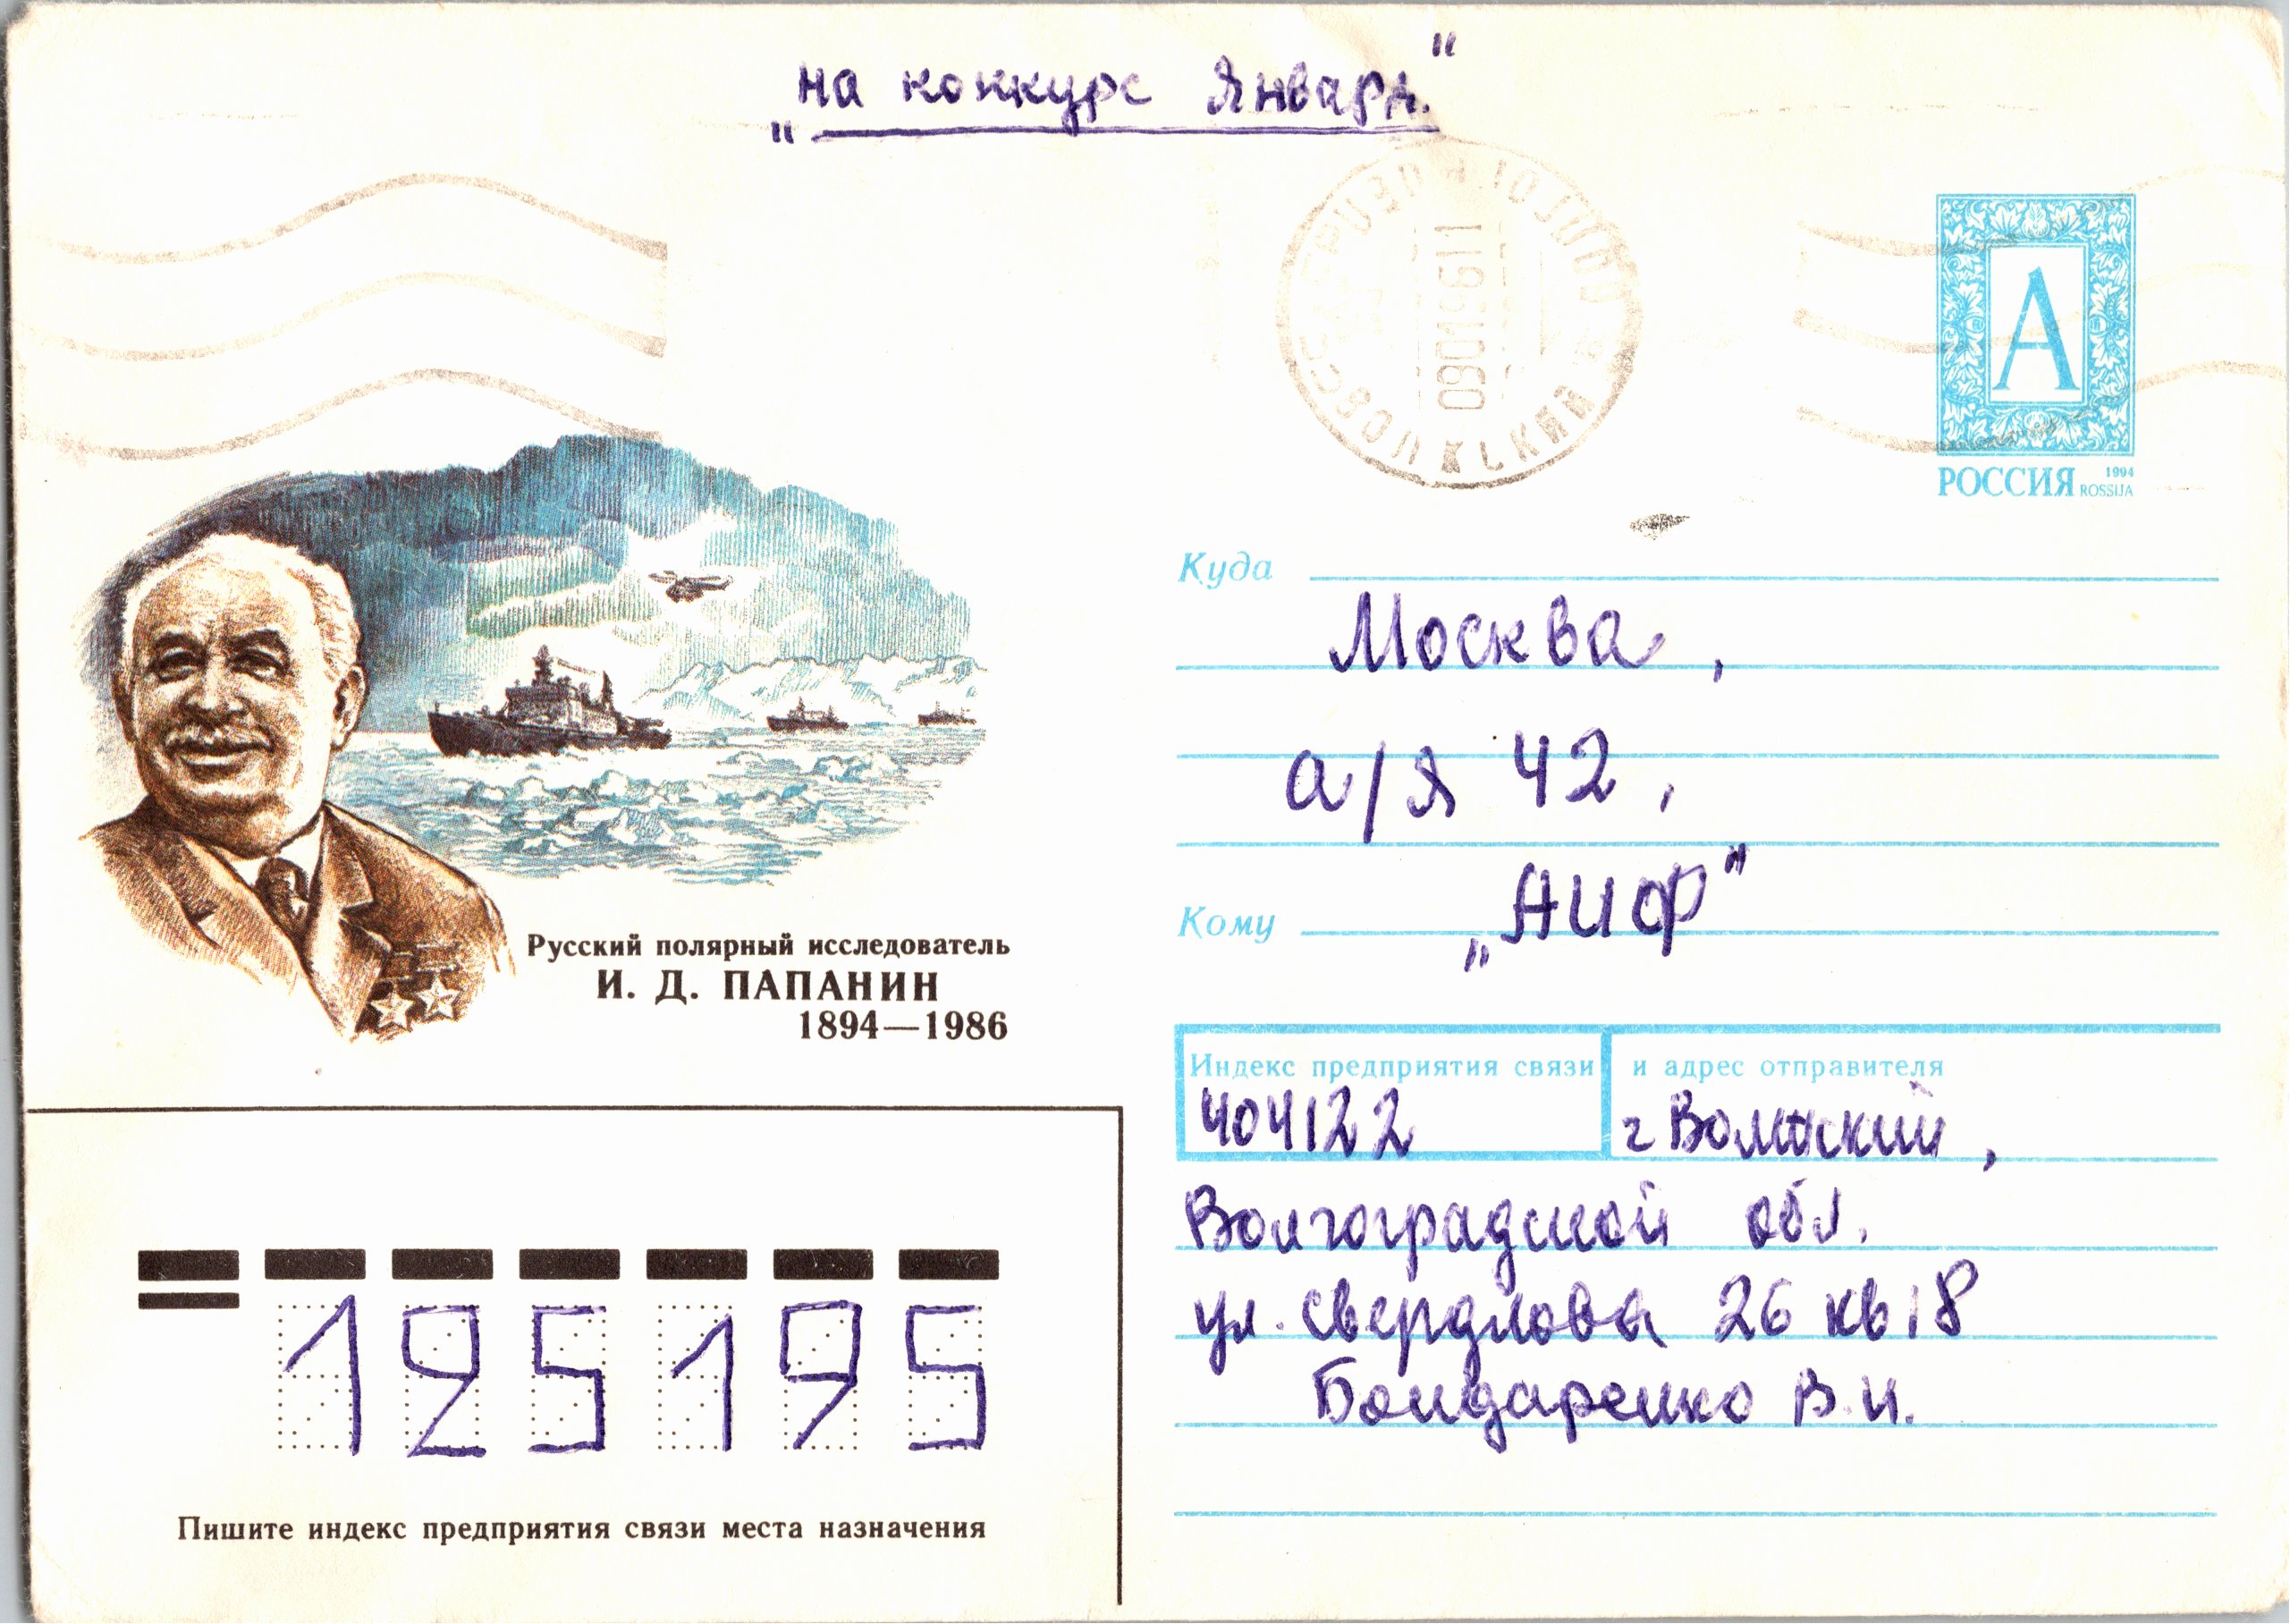 „на конкурс Января."
090196 11
ВОЛЖСКИЙ
А
РОССИЯ 1994
ROSSIJA
Куда
Москва,
а/я 42,
Кому „АИФ"
Русский полярный исследователь
И. Д. ПАПАНИН
1894—1986
Индекс предприятия связи и адрес отправителя
404122 г Волжский,
Волгоградской обл.
ул. Свердлова 26 кв 18
Бондаренко В.И.
125195
Пишите индекс предприятия связи места назначения